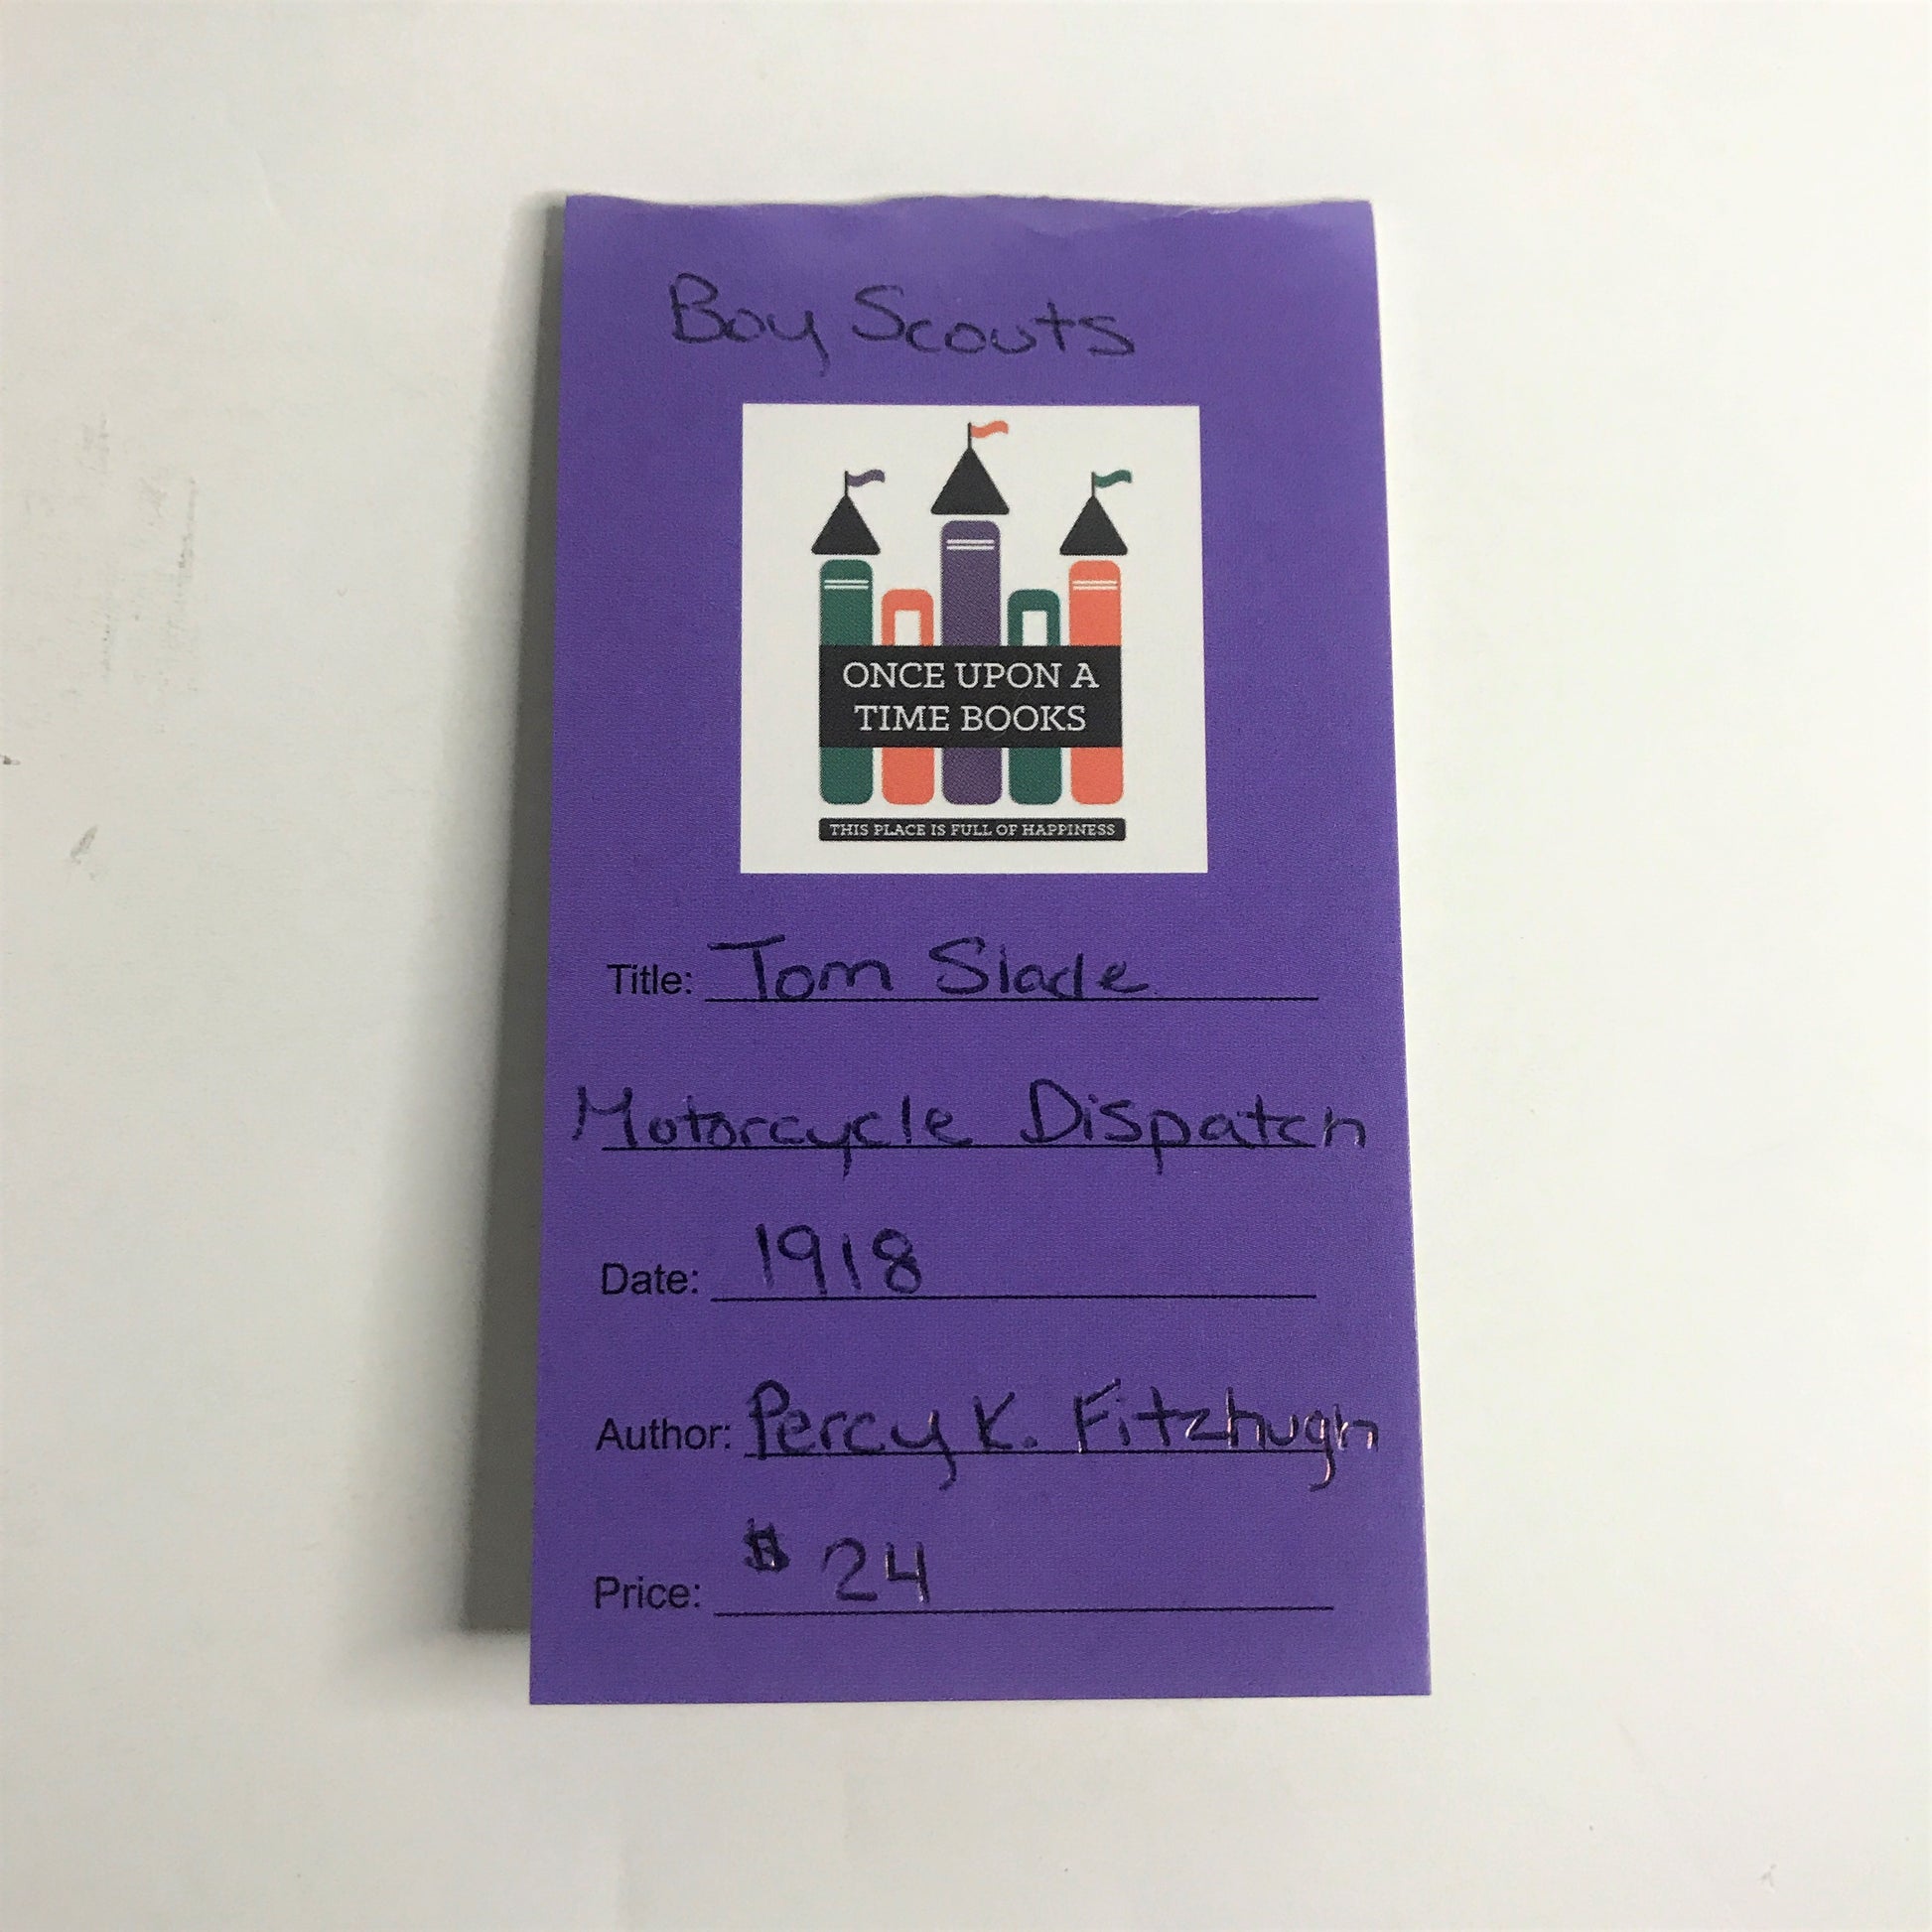 Boy Scouts
ONCE UPON A
TIME BOOKS
THIS PLACE IS FULL OF HAPPINESS
Title: Tom Slade
Motorcycle Dispatch
Date: 1918
Author: Percy K. Fitzhugh
Price: $ 24